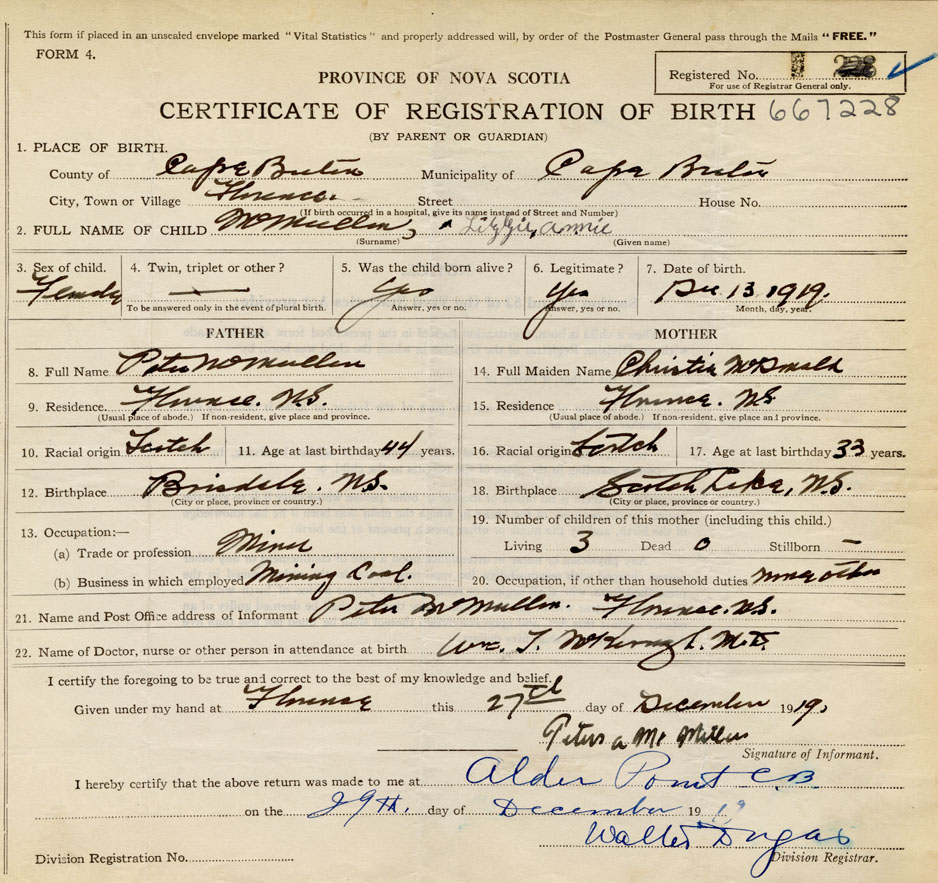 This form if placed in an unsealed envelope marked "Vital Statistics" and properly addressed will, by order of the Postmaster General pass through the Mails "FREE."
FORM 4.
Registered No. 228
For use of Registrar General only.
PROVINCE OF NOVA SCOTIA
CERTIFICATE OF REGISTRATION OF BIRTH 667228
(BY PARENT OR GUARDIAN)
1. PLACE OF BIRTH.
County of Cape Breton Municipality of Cape Breton
City, Town or Village Florence Street House No.
(If birth occurred in a hospital, give its name instead of Street and Number)
2. FULL NAME OF CHILD McMullen, Lizzie, Annie
(Surname) (Given name)
3. Sex of child. 4. Twin, triplet or other? 5. Was the child born alive? 6. Legitimate? 7. Date of birth.
Female — Yes Yes Dec. 13. 1919.
To be answered only in the event of plural birth. Answer, yes or no. Answer, yes or no. Month, day, year.
FATHER MOTHER
8. Full Name Peter McMullen 14. Full Maiden Name Christie McDonald
9. Residence Florence. N.S. 15. Residence Florence. N.S
(Usual place of abode.) If non-resident, give place and province. (Usual place of abode.) If non-resident, give place and province.
10. Racial origin Scotch 11. Age at last birthday 44 years. 16. Racial origin Scotch 17. Age at last birthday 33 years.
12. Birthplace N.S. 18. Birthplace Scotch Lake, N.S.
(City or place, province or country.) (City or place, province or country.)
13. Occupation:— 19. Number of children of this mother (including this child.)
(a) Trade or profession Miner Living 3 Dead 0 Stillborn —
(b) Business in which employed Mining Coal. 20. Occupation, if other than household duties none other
21. Name and Post Office address of Informant Peter McMullen. Florence. N.S.
22. Name of Doctor, nurse or other person in attendance at birth Wm. T. M.D.
I certify the foregoing to be true and correct to the best of my knowledge and belief.
Given under my hand at Florence this 27th day of December 1919
Peter a Mc Mullen
Signature of Informant.
I hereby certify that the above return was made to me at Alder Point C.B.
on the 29th. day of December 1919
Walter Dugas
Division Registration No. Division Registrar.